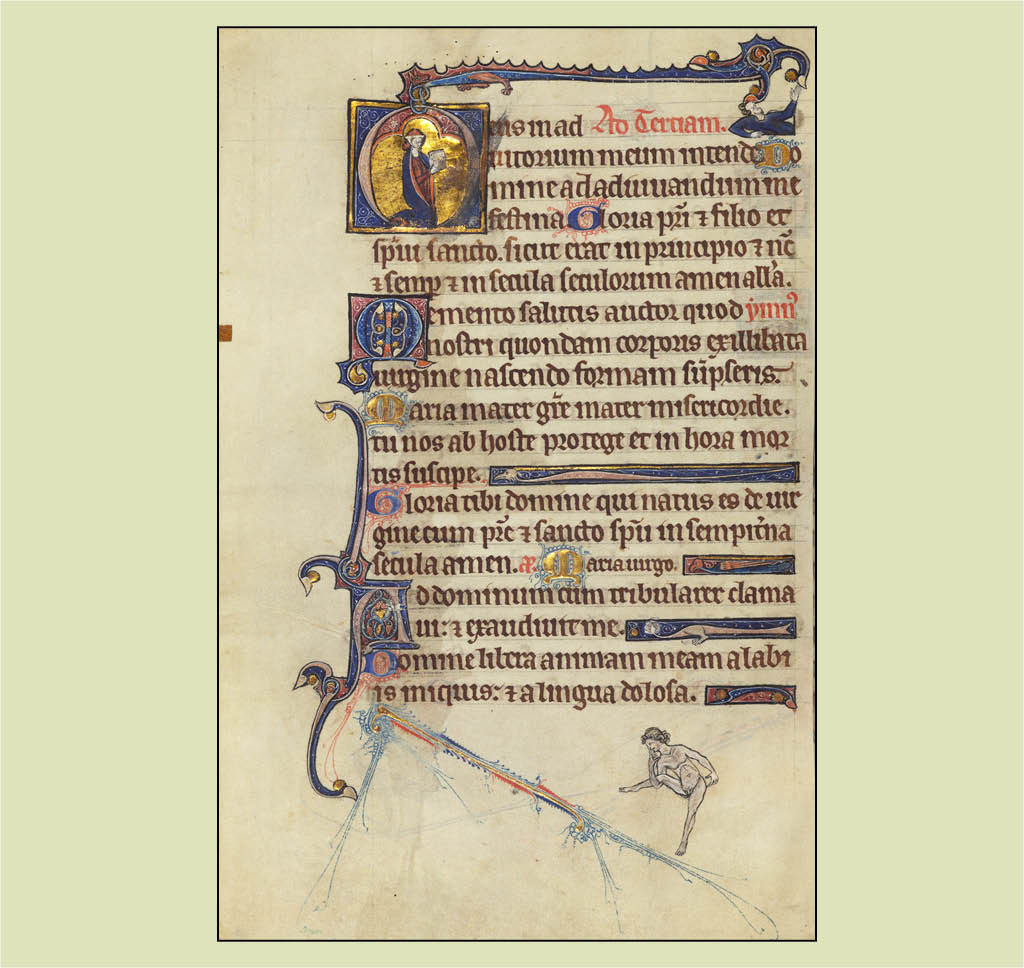 eus in ad Ad Terciam.
iutorium meum intende Do
mine ad adiuuandum me
festina Gloria pri ⁊ filio et
spiui sancto. sicut erat in principio ⁊ nc̄
⁊ semp ⁊ in secula seculorum amen alla.
Memento salutis auctor quod ymnꝰ
nostri quondam corporis ex illibata
uirgine nascendo formam sūpseris.
Maria mater gr̄e mater misericordie.
tu nos ab hoste protege et in hora mor
tis suscipe.
Gloria tibi domine qui natus es de uir
gine cum pr̄e ⁊ sancto sp̄u in sempit̄na
secula amen. Maria uirgo.
Ad dominum cum tribularer clama
ui: ⁊ exaudiuit me.
Domine libera animam meam a labi
is iniquis: ⁊ a lingua dolosa.